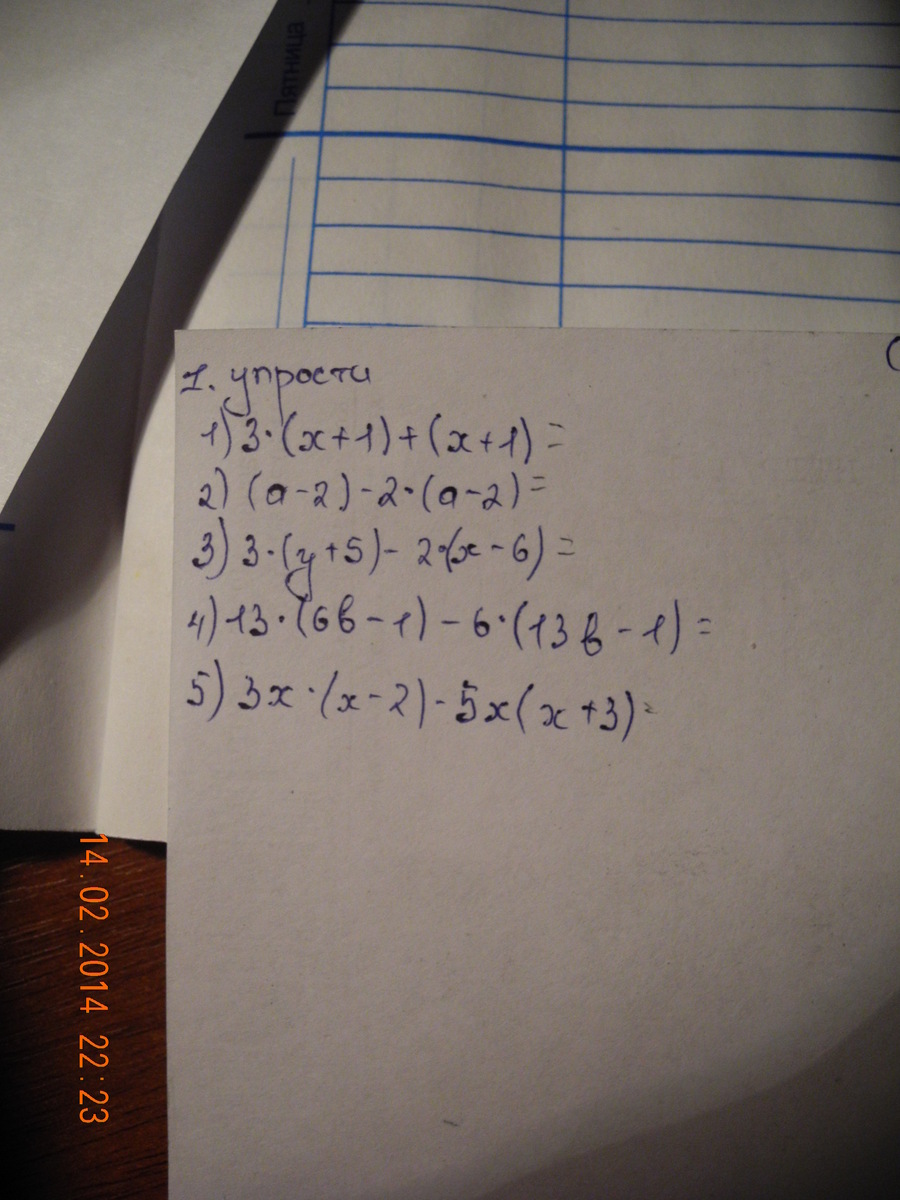 Пятница
1. упрости
1) 3·(x+1)+(x+1)=
2) (a-2)-2·(a-2)=
3) 3·(y+5)- 2·(x-6)=
4) 13·(6b-1)-6·(13b-1)=
5) 3x·(x-2)-5x(x+3)=
14.02.2014 22:23